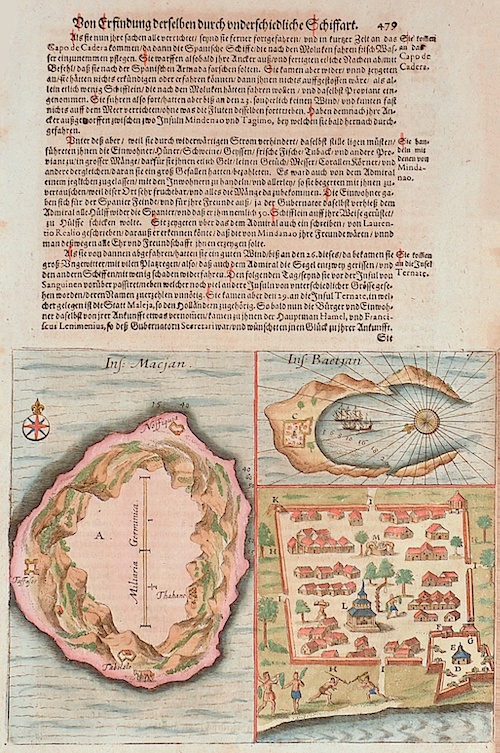 Von Erfindung derselben durch vnderschiedliche Schiffart. 479
Als sie nun ihre sachen alle verrichtet / seynd sie ferner fortgefahren / vnd in kurtzer Zeit an das
Capo de Cadera kommen / da dann die Spanische Schiffe / die nach den Molucken fahren frisch Was-
ser einzunemmen pflegen. Sie warffen alsobald ihre Ancker auß / vnd fertigten etliche Nachen ab / mit
Befehl / daß sie nach der Spanischen Armada forschen solten. Sie kamen aber wider / vnnd zeygeten
an / sie hätten nichts erkündigen oder erfahren können / dann ihnen nichts auffgestossen wäre / als al-
lein etlich wenig Schifflein / die nach den Molucken hätten fahren wollen / vnd daselbst Proviant ein-
genommen. Sie fuhren also fort / hatten aber biß an den 23. sonderlich keinen Wind / vnd kunten fast
nichts auff dem Meer verrichten / ohne was die Fluten desselben forttrieben. Haben demnach ihre An-
cker außgeworffen zwischen zwo Insuln Mindenao vnd Tagimo, bey welchen sie bald hernach durch-
gefahren.
Sie kommen
an das
Capo de
Cadera.
Vnter deß aber / weil sie durch widerwärtigen Strom verhindert / daselbst stille ligen müsten /
führeten ihnen die Einwohner / Hüner / Schweine / Geyssen / frische Fische / Taback / vnd andere Pro-
viant zu in grosser Mänge / darfür sie ihnen etlich Gelt / leinen Getüch / Messer / Corallen Körner / vnd
andere dergleichen / daran sie ein groß Gefallen hatten / bezahleten. Es ward auch von dem Admiral
einem jeglichen zugelassen / mit den Inwohnern zu handeln / vnd allerley / so sie begerten mit ihnen zu-
vertauschen / weil dieser Ort sehr fruchtbar / vnd alles die Mänge da zubekommen. Die Einwohner ga-
ben sich für der Spanier Feinde / vnd für ihre Freunde auß / ja der Gubernator daselbst verhieß dem
Admiral alle Hülff wider die Spanier / vnd daß er ihm endlich 50. Schifflein auff ihre Weise gerüstet /
zu Hülffe schicken wolte. Sie zeygeten vber das dem Admiral auch ein schreiben / von Lauren-
tio Realio geschrieben / darauß er erkennen könte / daß die von Mindanao ihre Freunde wären / vnnd
man deßwegen alle Ehr vnd Freundschafft ihnen erzeygen solte.
Sie han-
deln mit
denen von
Minda-
nao.
Als sie von dannen abgefahren / hatten sie ein guten Wind / biß an den 26. dieses / da bekamen sie
groß Vngewitter mit vilen Plätzregen / also / daß auch dem Admiral die Segel entzwey gerissen / vnd
den andern Schiffen mit wenig schaden widerfahren. Den folgenden Tag / seynd sie vor der Insul von
Sanguinen vorüber passiret / neben welcher noch viel andere Insuln von vnterschiedlicher Grösse gese-
hen worden / deren Namen zuerzehlen vnnötig. Sie kamen aber den 29. an die Insul Ternate, in wel-
cher gelegen ist die Statt Maleja, so den Holländern zugehörig. So bald nun die Bürger vnd Einwoh-
ner daselbst von jrer Ankunfft etwas vernomen / kamen zu jhnen der Hauptman Hamel, vnd Franci-
scus Lenimonius, so deß Gubernatorn Secretari war / vnd wünschten jnen Glück zu jhrer Ankunfft.
Sie
Sie kommen
an die Insel
Ternate.
Ins: Macjan.
Noffigina
A.
Miliaria Germinica
Taffasa
Thahane
Tabilolo
Ins: Battjan
C
K
I
H
M
L
F
G
E
D
H